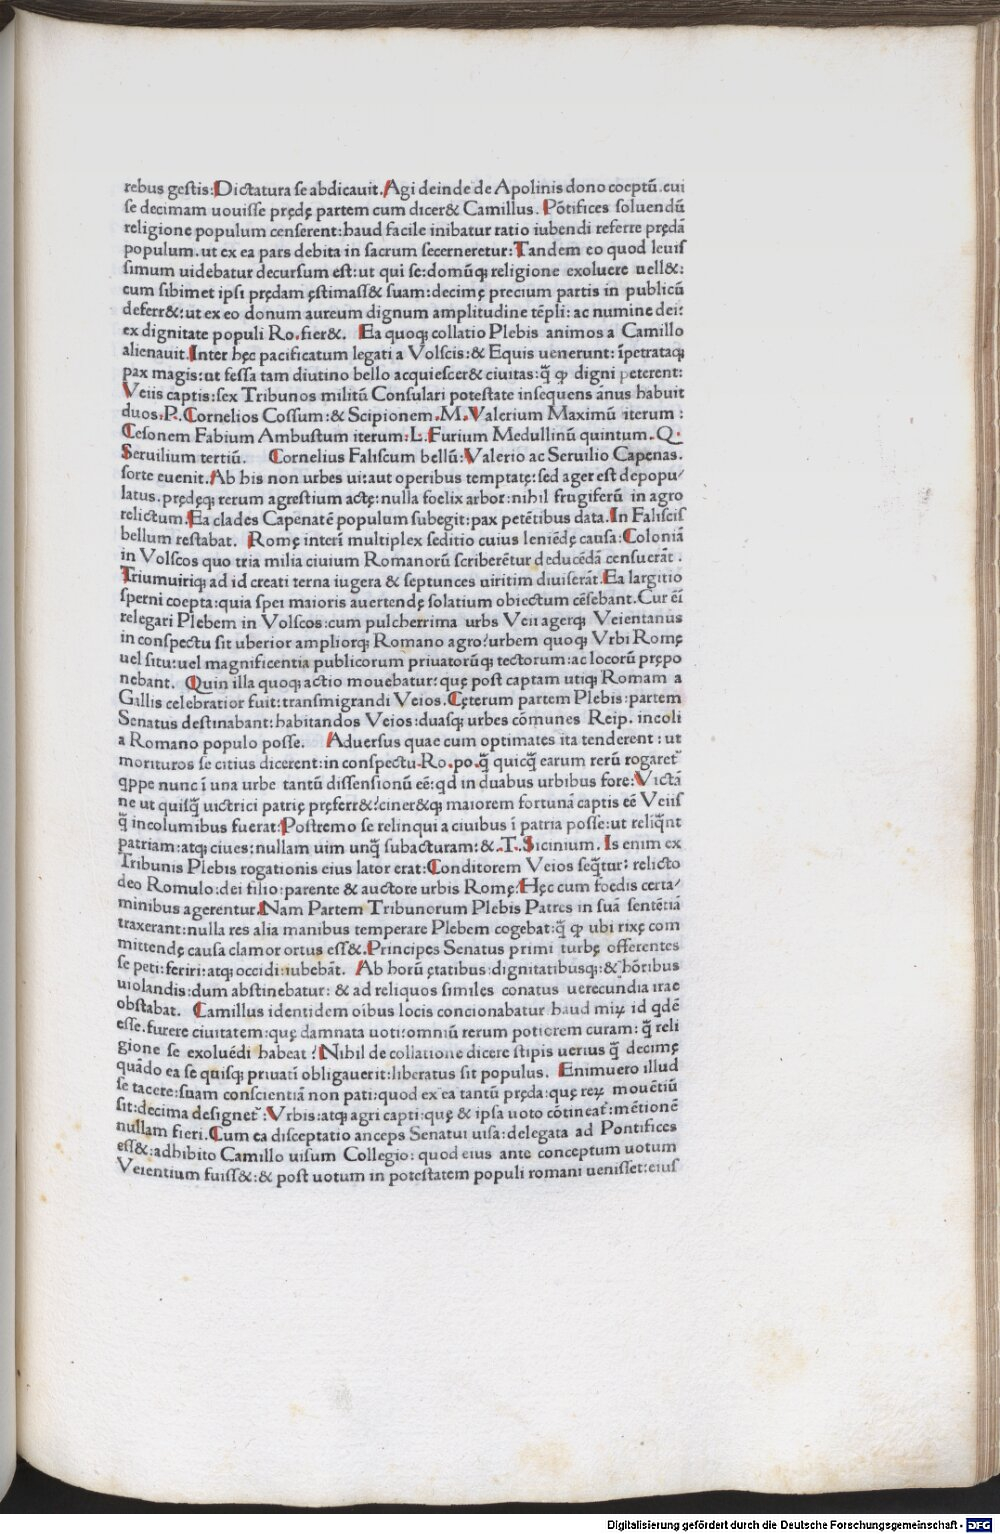 rebus gestis:Dictatura se abdicauit.Agi deinde de Apolinis dono cœptū.cui
se decimam uouisse prędę partem cum dicer& Camillus. Pōtifices soluendū
religione populum censerent:haud facile inibatur ratio iubendi referre prędā
populum.ut ex ea pars debita in sacrum secerneretur:Tandem eo quod leuis
simum uidebatur decursum est:ut qui se:domūq; religione exoluere uell&:
cum sibimet ipsi prędam ęstimass& suam:decimę precium partis in publicū
deferr&:ut ex eo donum aureum dignum amplitudine tēpli:ac numine dei:
ex dignitate populi Ro.fier&. Ea quoq; collatio Plebis animos a Camillo
alienauit.Inter hęc pacificatum legati a Volscis:& Equis uenerunt:īpetrataq;
pax magis:ut fessa tam diutino bello acquiescer& ciuitas:q̄ ꝙ digni peterent:
Veiis captis:sex Tribunos militū Consulari potestate insequens annus habuit
duos.P.Cornelios Cossum:& Scipionem.M.Valerium Maximū iterum:
Cesonem Fabium Ambustum iterum:L.Furium Medullinū quintum.Q.
Seruilium tertiū. Cornelius Faliscum bellū:Valerio ac Seruilio Capenas.
sorte euenit.Ab his non urbes ui:aut operibus temptatę:sed ager est depopu/
latus.prędęq; rerum agrestium actę:nulla fœlix arbor:nihil frugiferū in agro
relictum.Ea clades Capenatē populum subegit:pax petētibus data.In Faliscis
bellum restabat. Romę interī multiplex seditio cuius leniēdę causa:Coloniā
in Volscos quo tria milia ciuium Romanorū scriberētur deducēdā censuerāt.
Triumuiriq; ad id creati terna iugera & septunces uiritim diuiserāt.Ea largitio
sperni coepta:quia spei maioris auertendę solatium obiectum cēsebant.Cur eī
relegari Plebem in Volscos:cum pulcherrima urbs Veii agerq; Veientanus
in conspectu sit uberior ampliorq; Romano agro?urbem quoq; Vrbi Romę
uel situ:uel magnificentia publicorum priuatorūq; tectorum:ac locorū prępo
nebant. Quin illa quoq; actio mouebatur:quę post captam utiq; Romam a
Gallis celebratior fuit:transmigrandi Veios.Cęterum partem Plebis:partem
Senatus destinabant:habitandos Veios:duasq; urbes cōmunes Reip. incoli
a Romano populo posse. Aduersus quae cum optimates ita tenderent:ut
morituros se citius dicerent:in conspectu.Ro.po.q̄ quicq̄ earum rerū rogaret᷑
qppe nunc ī una urbe tantū dissensionū eē:qd in duabus urbibus fore:Victā
ne ut quisq̄ uictrici patrię pręferr&?ciner&q; maiorem fortunā captis eē Veiis
q̄ incolumibus fuerat:Postremo se relinqui a ciuibus ī patria posse:ut reliq̄nt
patriam:atq; ciues:nullam uim unq̄ subacturam:&.T.Sicinium. Is enim ex
Tribunis Plebis rogationis eius lator erat:Conditorem Veios seq̄tur: relicto
deo Romulo:dei filio:parente & auctore urbis Romę:Hęc cum fœdis certa/
minibus agerentur.Nam Partem Tribunorum Plebis Patres in suā sentētiā
traxerant:nulla res alia manibus temperare Plebem cogebat:q̄ ꝙ ubi rixę com
mittendę causa clamor ortus ess&.Principes Senatus primi turbę offerentes
se peti:feriri:atq; occidi:iubebāt. Ab horū ętatibus:dignitatibusq;:& hōribus
uiolandis:dum abstinebatur:& ad reliquos similes conatus uerecundia irae
obstabat. Camillus identidem oībus locis concionabatur haud miꝝ id qdē
esse.furere ciuitatem:quę damnata uoti:omniū rerum potiorem curam:q̄ reli
gione se exoluēdi habeat?Nihil de collatione dicere stipis uerius q̄ decimę
quādo ea se quisq; priuatī obligauerit:liberatus sit populus. Enimuero illud
se tacere:suam conscientiā non pati:quod ex ea tantū pręda:quę reꝝ mouētiū
sit:decima designet᷑:Vrbis:atq; agri capti:quę & ipsa uoto cōtineat᷑:mētionē
nullam fieri.Cum ea disceptatio anceps Senatui uisa:delegata ad Pontifices
ess&:adhibito Camillo uisum Collegio:quod eius ante conceptum uotum
Veientium fuiss&:& post uotum in potestatem populi romani uenisset:eius
Digitalisierung gefördert durch die Deutsche Forschungsgemeinschaft - DFG